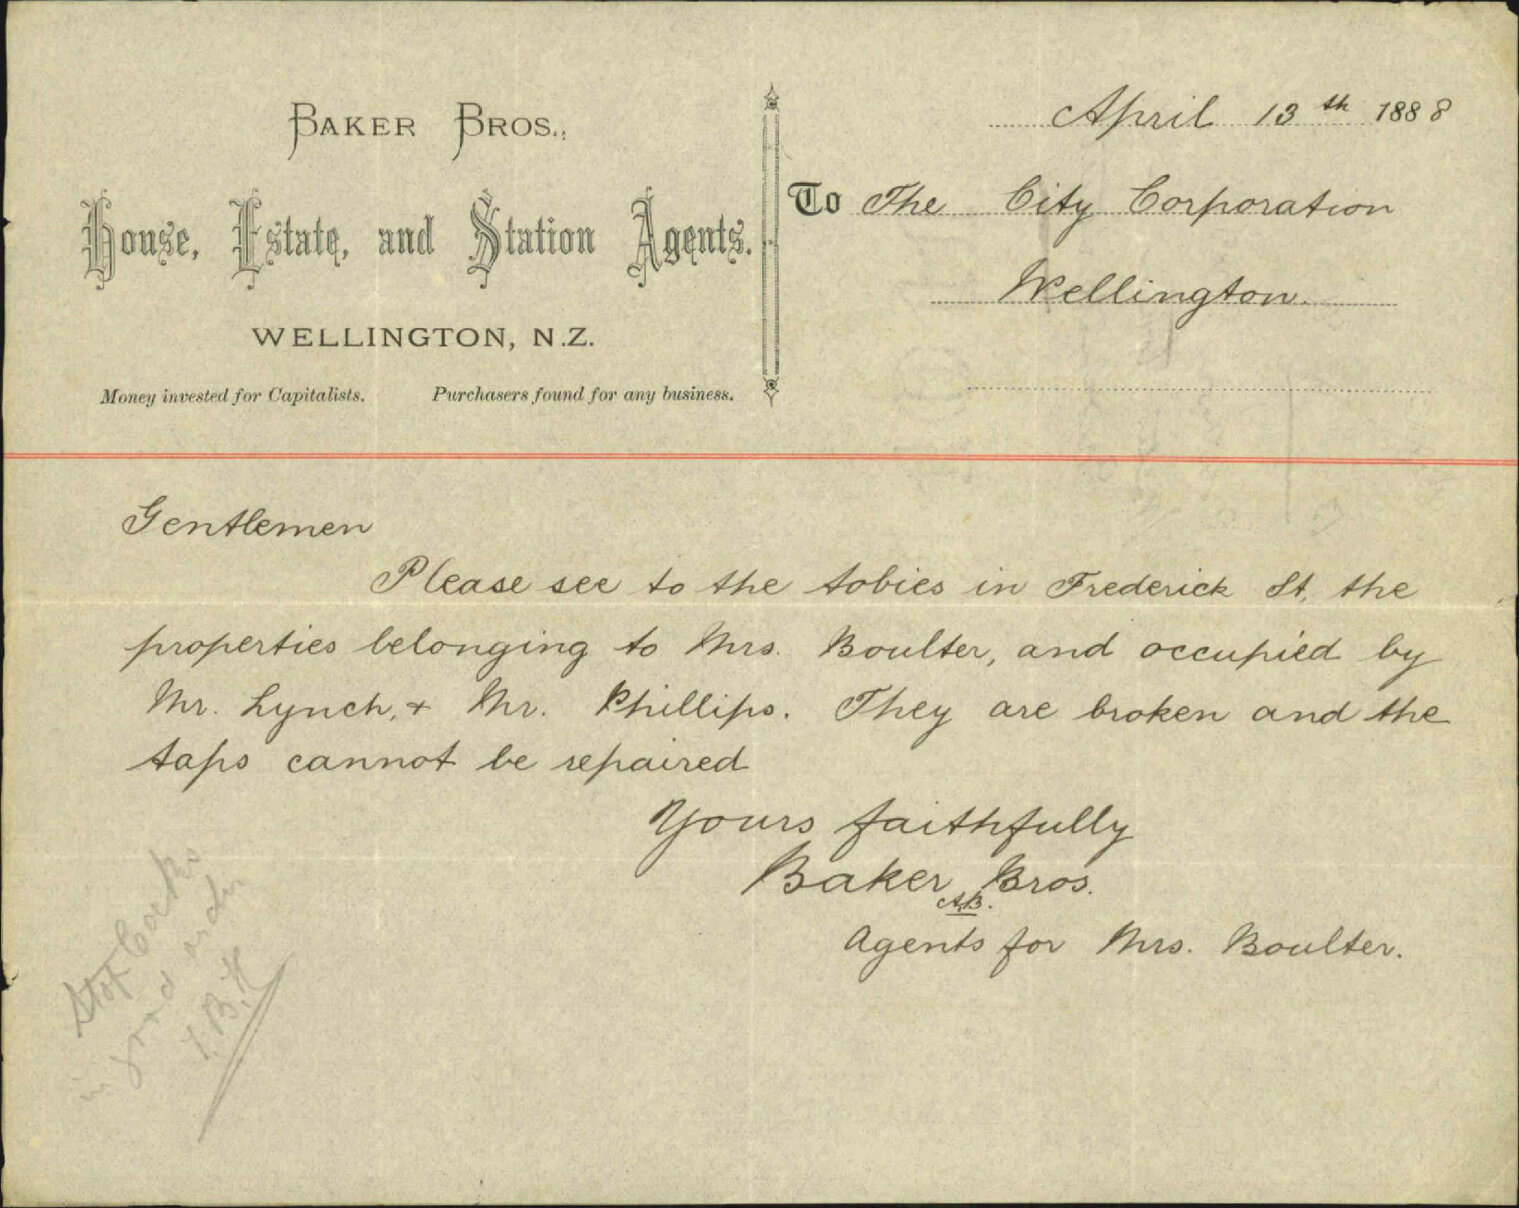 BAKER BROS.,
House, Estate, and Station Agents.
WELLINGTON, N.Z.
Money invested for Capitalists. Purchasers found for any business.
April 13th 1888
To The City Corporation
Wellington.
Gentlemen
Please see to the tobies in Frederick St, the
properties belonging to Mrs. Boulter, and occupied by
Mr. Lynch, & Mr. Phillips. They are broken and the
taps cannot be repaired
Yours faithfully
Baker Bros.
A.B.
Agents for Mrs. Boulter.
Stop Cocks
in good order